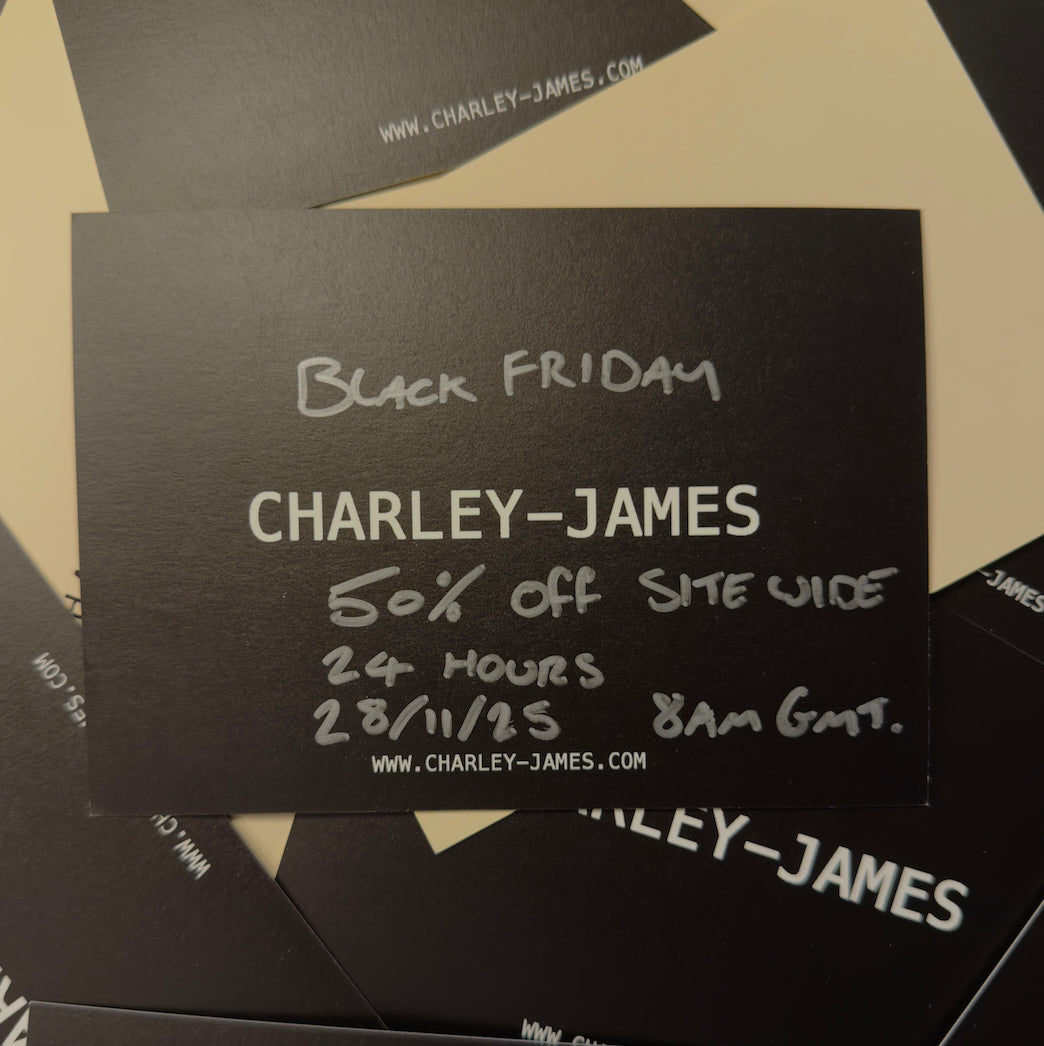 WWW.CHARLEY-JAMES.COM
BLACK FRIDAY
CHARLEY-JAMES
50% OFF SITE WIDE
24 HOURS
28/11/25 8AM GMT.
WWW.CHARLEY-JAMES.COM
-JAMES
ES.COM
WWW.CH
RLEY-JAMES
WWW